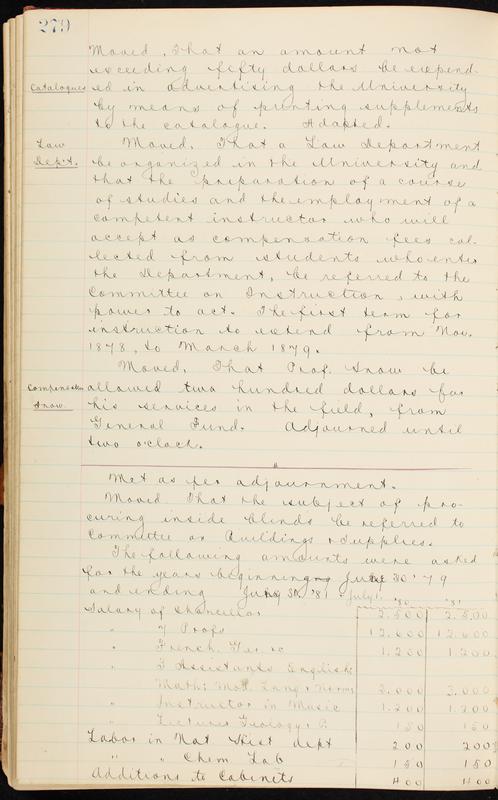 279
Moved, That an amount not
exceeding fifty dollars be expend-
Catalogues
ed in advertising the University
by means of printing supplements
to the catalogue. Adapted.
Law
Dep't.
Moved, That a Law Department
be organized in the University and
that the preparation of a course
of studies and the employment of a
competent instructor who will
accept as compensation fees col-
lected from students who enter
the Department, be referred to the
Committee on Instruction, with
power to act. The first term for
instruction to extend from Nov.
1878, to March 1879.
Moved, That Prof. Snow be
Compensation
Snow.
allowed two hundred dollars for
his services in the field, from
General Fund. Adjourned until
two o'clock.
Met as per adjournment.
Moved That the subject of pro-
curing inside blinds be referred to
Committee on Buildings & Supplies.
The following amounts were asked
for the years beginning July 30 '79
and ending July 30, '81 July 1. '80 '81
Salary of Chancellor 2.500 2.500
" 7 Profs 12.600 12.600
" French, Ger. &c 1.200 1.200
" 3 Assistants English;
Math; Mod. Lang. & Norm. 3.000 3.000
" Instructor in Music 1.200 1.200
" Lectures Geology 150 150
Labor in Nat Hist dept 200 200
" " Chem Lab 150 150
Additions to Cabinets 400 400